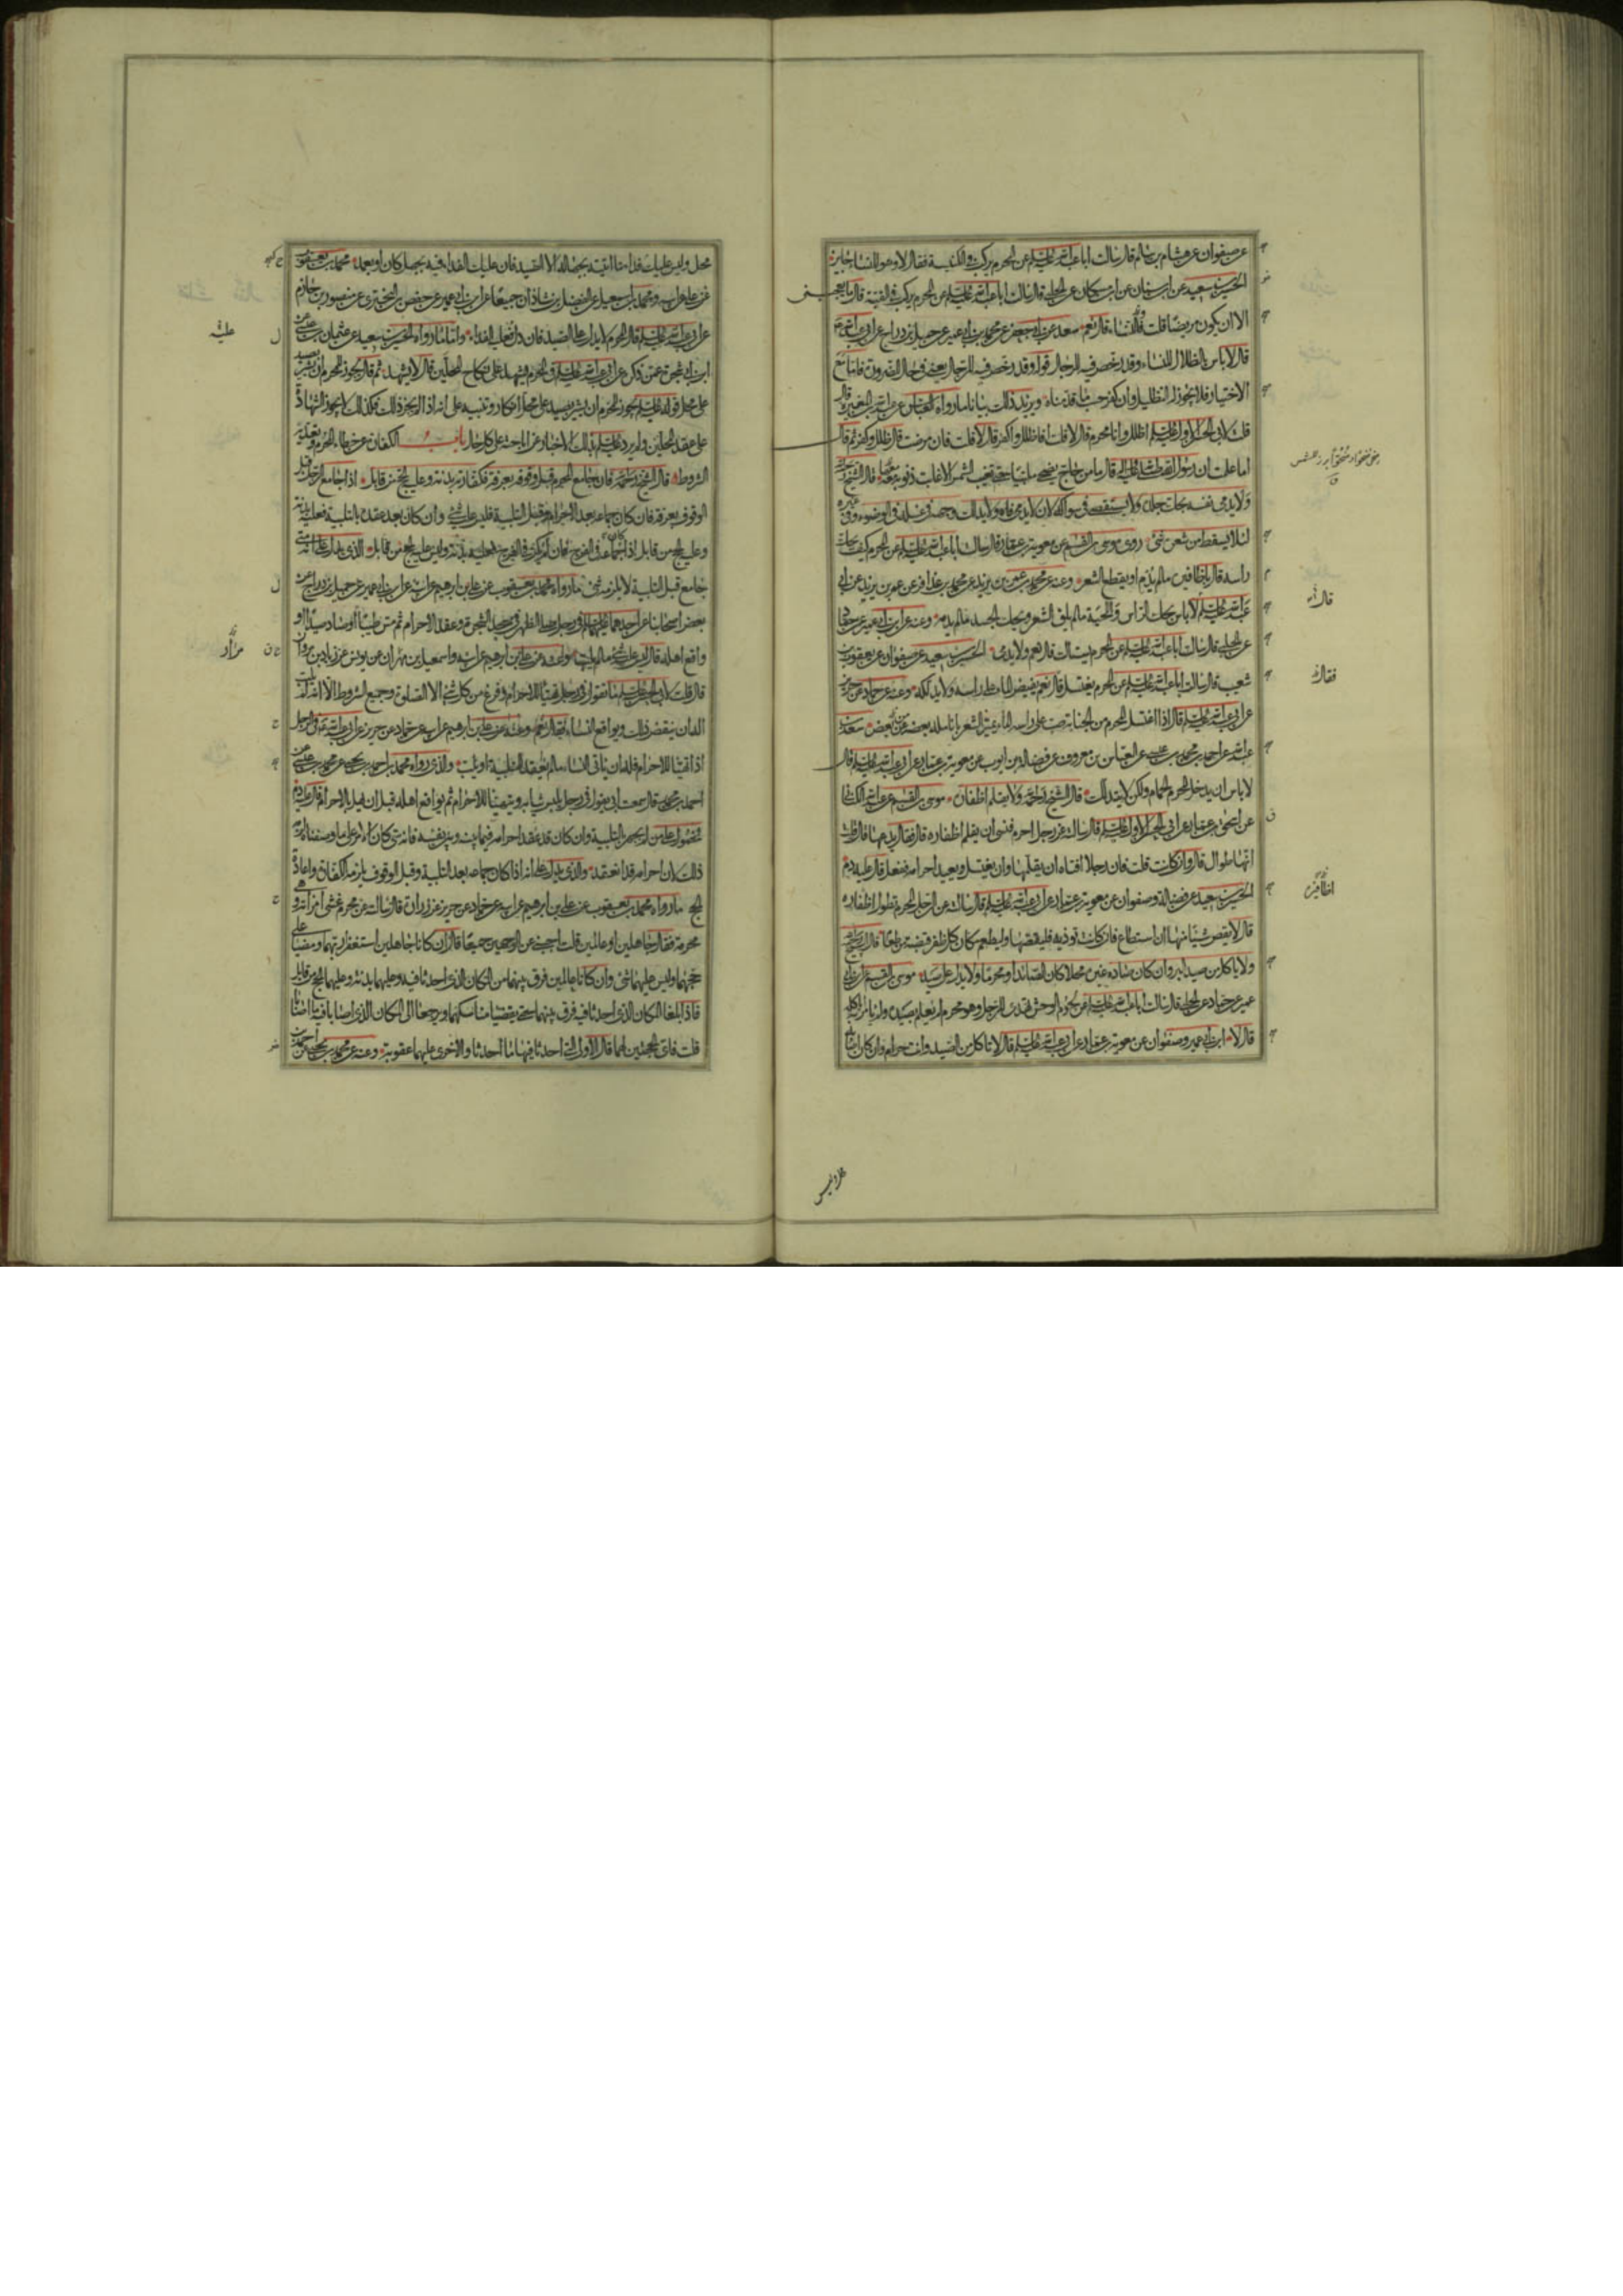 عن صفوان عن هشام بن سالم قال سالت ابا عبد الله عليه السلم عن المحرم يركب في الكنيسة فقال لا وهو للنساء جايز
الحسين بن سعيد عن ابن سنان عن ابن مسكان عن الحلبي قال سالت ابا عبد الله عليه السلم عن المحرم يركب في القبة قال ما يعجبني
الا ان يكون مريضا قلت فالنساء قال نعم سعد عن ابي جعفر عن محمد بن ابي عمير عن جميل بن دراج عن ابي عبد الله ع
قال لا باس بالظلال للنساء وقد رخص فيه للرجال قوله وقد رخص فيه للرجال يعني في حال الضرورة فاما مع
الاختيار فلا يجوز لهم التظليل وان كفر حسب ما قدمناه ويزيد ذلك بيانا ما رواه العباس عن عبد الله بن المغيرة قال
قلت لابي الحسن الاول عليه السلم اظلل وانا محرم قال لا قلت افاظلل واكفر قال لا قلت فان مرضت قال ظلل وكفر ثم قال
اما علمت ان رسول الله صلى الله عليه واله قال ما من حاج يضحي ملبيا حتى تغيب الشمس الا غابت ذنوبه معها قال الشيخ
ولا يدمي نفسه بحك جلده ولا يستقصي في سواكه لان لا يدمي فاه ولا يدلك وجهه في غسله في الوضوء وفي غيره
لئلا يسقط من شعره شيء روى موسى بن القسم عن معوية بن عمار قال سالت ابا عبد الله عليه السلم عن المحرم كيف يحك
راسه قال باظافيره ما لم يدم او يقطع الشعر وعنه عن محمد بن عمر بن يزيد عن محمد بن عذافر عن عمر بن يزيد عن ابي
عبد الله عليه السلم لا باس بحك الراس واللحية ما لم يلق الشعر وبحك الجسد ما لم يدمه وعنه عن ابن ابي عمير عن حماد
عن الحلبي قال سالت ابا عبد الله عليه السلم عن المحرم يستاك قال نعم ولا يدمي الحسين بن سعيد عن صفوان عن يعقوب بن
شعيب قال سالت ابا عبد الله عليه السلم عن المحرم يغتسل قال نعم يفيض الماء على راسه ولا يدلكه وعنه عن حماد عن حريز
عن ابي عبد الله عليه السلم قال اذا اغتسل المحرم من الجنابة صب على راسه الماء يميز الشعر بانامله بعضه من بعض سعد بن
عبد الله عن احمد بن محمد بن عيسى عن العباس بن معروف عن فضالة بن ايوب عن معوية بن عمار عن ابي عبد الله عليه السلم قال
لا باس ان يدخل المحرم الحمام ولكن لا يتدلك قال الشيخ رحمه الله ولا يقلم اظفاره موسى بن القسم عن عبد الله الكناني
عن اسحق بن عمار عن ابي الحسن الاول عليه السلم قال سالته عن رجل احرم فنسي ان يقلم اظفاره قال فقال يدعها قال قلت
انها طوال قال وان كانت قلت فان رجلا افتاه ان يقلمها وان يغتسل ويعيد احرامه ففعل قال عليه دم
الحسين بن سعيد عن فضالة وصفوان عن معوية بن عمار عن ابي عبد الله عليه السلم قال سالته عن الرجل المحرم تطول اظفاره
قال لا يقص شيئا منها ان استطاع فان كانت توذيه فليقصها وليطعم مكان كل ظفر قبضة من طعام قال الشيخ
ولا ياكل من صيد البر وان كان صاده غيره محلا كان الصائد او محرما ولا يدل على صيد موسى بن القسم عن ابن ابي
عمير عن حماد عن الحلبي قال سالت ابا عبد الله عليه السلم عن لحوم الوحش تهدى للرجل وهو محرم لم يعلم بصيده ولم يامر به ايأكله
قال لا ابن ابي عمير وصفوان عن معوية بن عمار عن ابي عبد الله عليه السلم قال لا تاكل من الصيد وانت حرام وان كان اصابه
قال
فقال
اظافيره
محل وليس عليك فداء ما اتيته بجهالة الا الصيد فان عليك الفداء فيه بجهل كان او بعمد محمد بن يعقوب
عن علي عن ابيه ومحمد بن اسمعيل عن الفضل بن شاذان جميعا عن ابن ابي عمير عن حفص بن البختري عن منصور بن حازم
عن ابي عبد الله عليه السلم قال المحرم لا يدل على الصيد فان دل فعليه الفداء واما ما رواه الحسين بن سعيد عن عثمان بن عيسى عن
ابن ابي شجرة عمن ذكره عن ابي عبد الله عليه السلم في المحرم يشهد على نكاح المحلين قال لا يشهد ثم قال يجوز للمحرم ان يشير بصيد
على محل قوله عليه السلم يجوز للمحرم ان يشير بصيد على محل انكار وتنبيه على انه اذا لم يجز ذلك فكذلك لا يجوز الشهادة
على عقد المحلين ولم يرد عليه السلم بذلك الاخبار عن اباحته على كل حال باب الكفارة عن خطاء المحرم وتعديه
الشروط قال الشيخ رحمه الله فان جامع المحرم قبل وقوفه بعرفة فكفارته بدنة وعليه الحج من قابل اذا جامع الرجل قبل
الوقوف بعرفة فان كان جماعه بعد الاحرام وقبل التلبية فليس عليه شيء وان كان بعد عقده بالتلبية فعليه بدنة
وعليه الحج من قابل اذا كان جماعه في الفرج فان لم يكن في الفرج فعليه بدنة وليس عليه الحج من قابل الذي يدل على انه متى
جامع قبل التلبية لا يلزمه شيء ما رواه محمد بن يعقوب عن علي بن ابرهيم عن ابيه عن ابن ابي عمير عن جميل بن دراج عن
بعض اصحابنا عن احدهما عليهما السلم في رجل صلى الظهر في مسجد الشجرة وعقد الاحرام ثم مس طيبا او صاد صيدا او
واقع اهله قال ليس عليه شيء ما لم يلب وعنه عن علي بن ابرهيم عن ابيه واسمعيل بن مهران عن يونس عن زياد بن مروان
قال قلت لابي الحسن عليه السلم ما تقول في رجل تهيا للاحرام وفرغ من كل شيء الا الصلوة وجميع الشروط الا انه لم يلب
اله ان ينقض ذلك ويواقع النساء فقال نعم وعنه عن علي بن ابرهيم عن ابيه عن حماد عن حريز عن ابي عبد الله ع في الرجل
اذا تهيا للاحرام فله ان ياتي النساء ما لم يعقد التلبية او يلب والذي رواه محمد بن احمد بن يحيى عن محمد بن عيسى عن
احمد بن محمد قال سمعت ابي يقول في رجل يلبس ثيابه ويتهيا للاحرام ثم يواقع اهله قبل ان يهل بالاحرام قال عليه دم
فمحمول على من لم يجهر بالتلبية وان كان قد عقد احرامه فيما بينه وبين نفسه فانه متى كان الامر على ما وصفناه لزمه
ذلك لان احرامه قد انعقد والذي يدل على انه اذا كان جماعه بعد التلبية وقبل الوقوف يلزمه الكفارة واعادة
الحج ما رواه محمد بن يعقوب عن علي بن ابرهيم عن ابيه عن حماد عن حريز عن زرارة قال سالته عن محرم غشي امراته وهي
محرمة فقال جاهلين او عالمين قلت اجبني عن الوجهين جميعا قال ان كانا جاهلين استغفرا ربهما ومضيا على
حجهما وليس عليهما شيء وان كانا عالمين فرق بينهما من المكان الذي احدثا فيه وعليهما بدنة وعليهما الحج من قابل
فاذا بلغا المكان الذي احدثا فيه فرق بينهما حتى يقضيا مناسكهما ويرجعا الى المكان الذي اصابا فيه ما اصابا
قلت فاي الحجتين لهما قال الاولى التي احدثا فيها ما احدثا والاخرى عليهما عقوبة وعنه عن محمد بن يحيى عن احمد بن
عليه